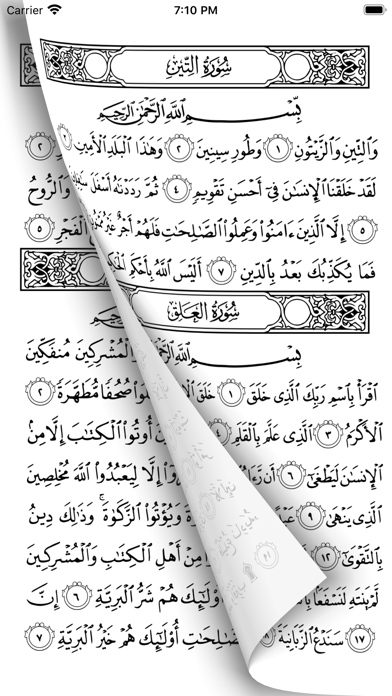 Carrier 7:10 PM
سُورَةُ التِّينِ
بِسْمِ ٱللَّهِ ٱلرَّحْمَٰنِ ٱلرَّحِيمِ
وَٱلتِّينِ وَٱلزَّيْتُونِ ١ وَطُورِ سِينِينَ ٢ وَهَٰذَا ٱلْبَلَدِ ٱلْأَمِينِ ٢
لَقَدْ خَلَقْنَا ٱلْإِنسَٰنَ فِىٓ أَحْسَنِ تَقْوِيمٍ ٤ ثُمَّ رَدَدْنَٰهُ أَسْفَلَ وَٱلرُّوحُ
٥ إِلَّا ٱلَّذِينَ ءَامَنُوا۟ وَعَمِلُوا۟ ٱلصَّٰلِحَٰتِ فَلَهُمْ أَجْرٌ غَيْرُ ٱلْفَجْرِ ٥
فَمَا يُكَذِّبُكَ بَعْدُ بِٱلدِّينِ ٧ أَلَيْسَ ٱللَّهُ بِأَحْكَمِ
سُورَةُ العَلَقِ
بِسْمِ ٱللَّهِ ٱلْمُشْرِكِينَ مُنفَكِّينَ
ٱقْرَأْ بِٱسْمِ رَبِّكَ ٱلَّذِى خَلَقَ ١ خَلَقَ صُحُفًا مُّطَهَّرَةً ٢
ٱلْأَكْرَمُ ٣ ٱلَّذِى عَلَّمَ بِٱلْقَلَمِ ٤ أُوتُوا۟ ٱلْكِتَٰبَ إِلَّا مِنۢ
ٱلْإِنسَٰنَ لَيَطْغَىٰٓ ٦ أَن إِلَّا لِيَعْبُدُوا۟ ٱللَّهَ مُخْلِصِينَ
ٱلَّذِى يَنْهَىٰ ٩ وَيُؤْتُوا۟ ٱلزَّكَوٰةَ ۚ وَذَٰلِكَ دِينُ
بِٱلتَّقْوَىٰٓ ١٢ مِنْ أَهْلِ ٱلْكِتَٰبِ وَٱلْمُشْرِكِينَ
لَّمْ يَنتَهِ لَنَسْفَعًۢا أُو۟لَٰٓئِكَ هُمْ شَرُّ ٱلْبَرِيَّةِ ٦ إِنَّ
١٧ سَنَدْعُ ٱلزَّبَانِيَةَ ١٨ أُو۟لَٰٓئِكَ هُمْ خَيْرُ ٱلْبَرِيَّةِ ٧